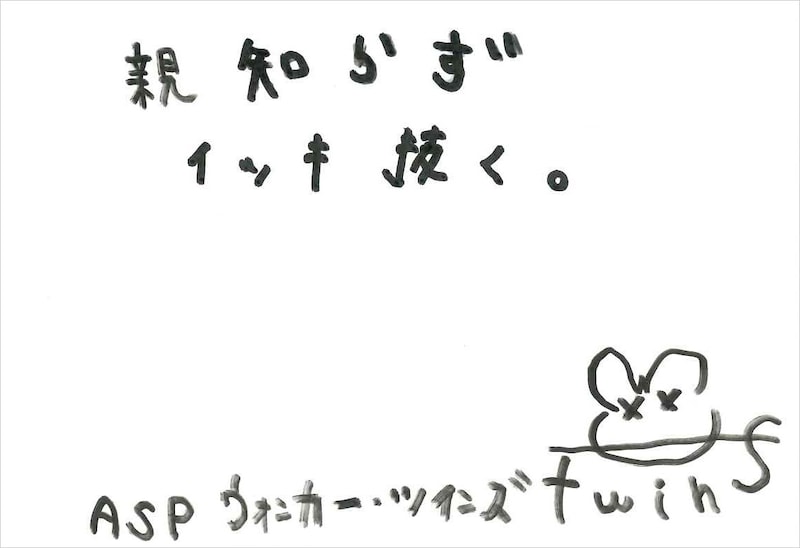 親知らず
イッキ抜く。
ASP ウォンカー・ツインズ twins